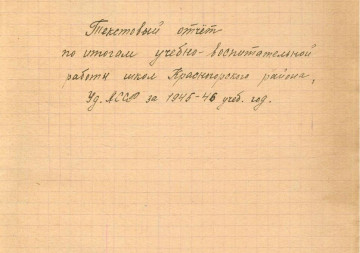 Текстовый отчёт
по итогам учебно-воспитательной
работы школ Красногорского района,
Уд. АССР за 1945-46 учеб. год.